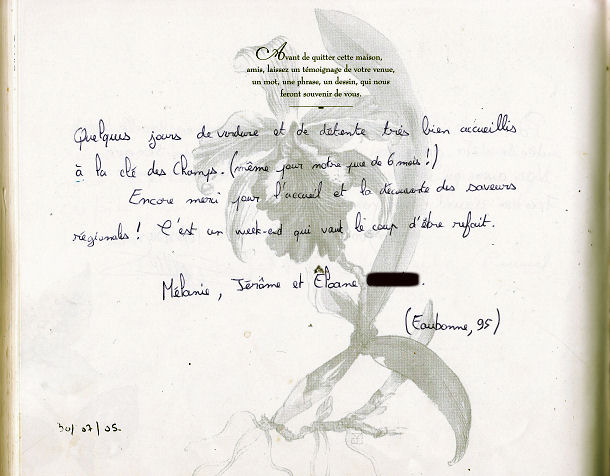 Avant de quitter cette maison,
amis, laissez un témoignage de votre venue,
un mot, une phrase, un dessin, qui nous
feront souvenir de vous.
Quelques jours de verdure et de détente très bien accueillis
à la clé des Champs. (même pour notre puce de 6 mois !)
Encore merci pour l'accueil et la découverte des saveurs
régionales ! C'est un week-end qui vaut le coup d'être refait.
Mélanie, Jérôme et Eloane
(Eaubonne, 95)
30/07/05.